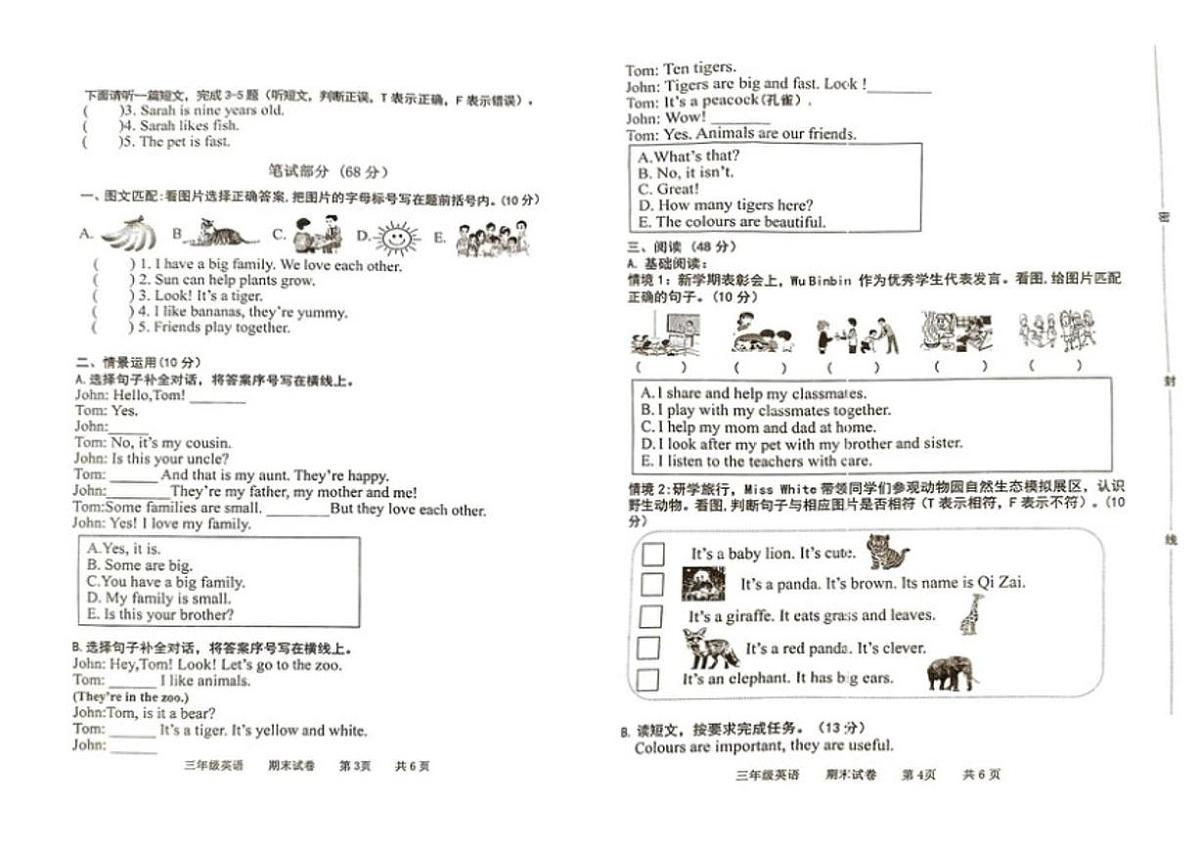 下面请听一篇短文，完成 3-5 题（听短文，判断正误，T 表示正确，F 表示错误）。
(　　)3. Sarah is nine years old.
(　　)4. Sarah likes fish.
(　　)5. The pet is fast.
笔试部分（68 分）
一、图文匹配:看图片选择正确答案,把图片的字母标号写在题前括号内。(10 分)
A. B C. D. E.
(　　) 1. I have a big family. We love each other.
(　　) 2. Sun can help plants grow.
(　　) 3. Look! It's a tiger.
(　　) 4. I like bananas, they're yummy.
(　　) 5. Friends play together.
二、情景运用(10 分)
A. 选择句子补全对话，将答案序号写在横线上。
John: Hello,Tom! ________
Tom: Yes.
John:______
Tom: No, it's my cousin.
John: Is this your uncle?
Tom: ______ And that is my aunt. They're happy.
John:________They're my father, my mother and me!
Tom:Some families are small. ________But they love each other.
John: Yes! I love my family.
A.Yes, it is.
B. Some are big.
C.You have a big family.
D. My family is small.
E. Is this your brother?
B. 选择句子补全对话，将答案序号写在横线上。
John: Hey,Tom! Look! Let's go to the zoo.
Tom: ______ I like animals.
(They're in the zoo.)
John:Tom, is it a bear?
Tom: ______ It's a tiger. It's yellow and white.
John: ______
三年级英语　期末试卷　第 3页　共 6 页
Tom: Ten tigers.
John: Tigers are big and fast. Look !________
Tom: It's a peacock(孔雀) .
John: Wow! ________
Tom: Yes. Animals are our friends.
A.What's that?
B. No, it isn't.
C. Great!
D. How many tigers here?
E. The colours are beautiful.
三、阅读（48 分）
A. 基础阅读：
情境 1：新学期表彰会上，Wu Binbin 作为优秀学生代表发言。看图,给图片匹配
正确的句子。（10 分）
(　　) (　　) (　　) (　　) (　　)
A. I share and help my classmates.
B. I play with my classmates together.
C. I help my mom and dad at home.
D. I look after my pet with my brother and sister.
E. I listen to the teachers with care.
情境 2:研学旅行，Miss White 带领同学们参观动物园自然生态模拟展区，认识
野生动物。看图,判断句子与相应图片是否相符（T 表示相符，F 表示不符）。（10
分）
It's a baby lion. It's cute.
It's a panda. It's brown. Its name is Qi Zai.
It's a giraffe. It eats grass and leaves.
It's a red panda. It's clever.
It's an elephant. It has big ears.
B. 读短文，按要求完成任务。（13 分）
Colours are important, they are useful.
三年级英语　期末试卷　第 4页　共 6 页
密
封
线